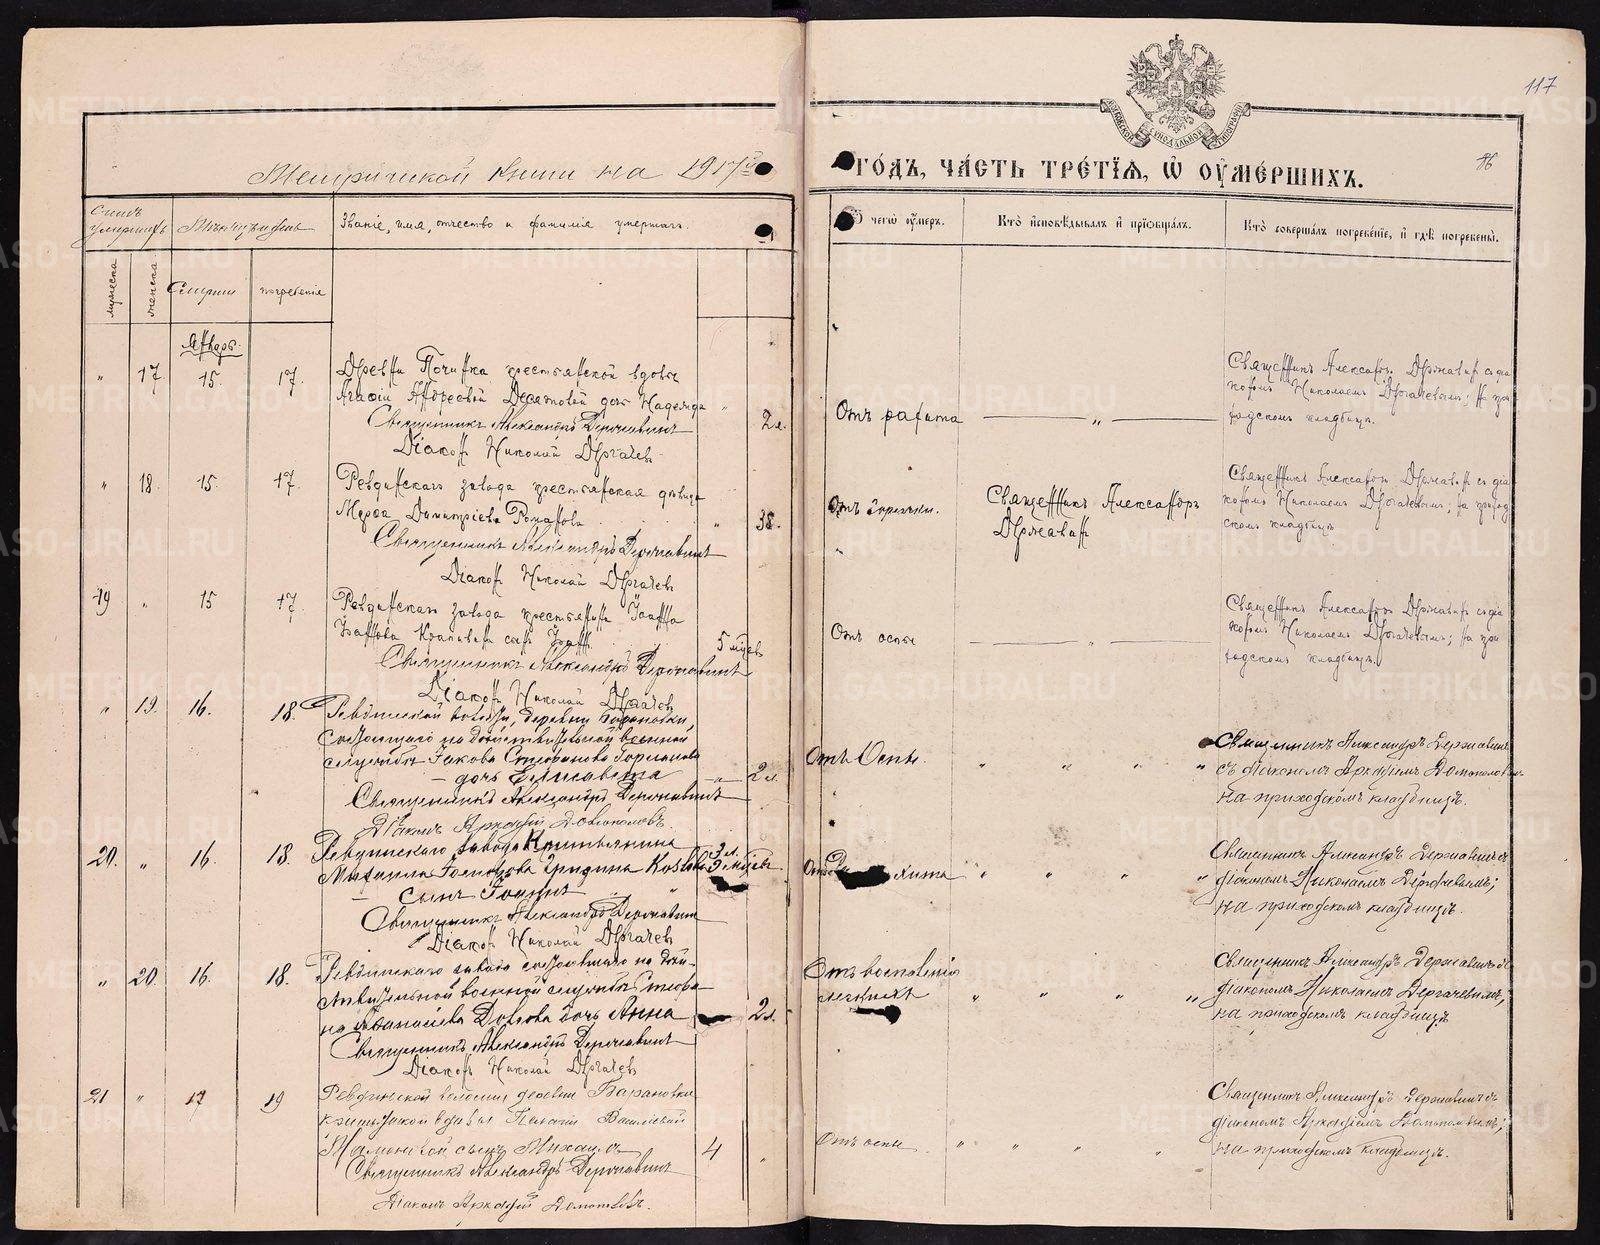 117
86
Метрической книги на 1917й
ГОДЪ, ЧАСТЬ ТРЕТІѦ, Ѡ ОУМЕРШИХЪ.
Счетъ умершихъ
Мѣсяцъ и день
Званіе, имя, отчество и фамилія умершаго.
Ѿ чегѡ оумеръ.
Кто исповѣдывалъ и пріобщалъ.
Кто совершалъ погребеніе, и гдѣ погребены.
мужеска
женска
Смерти
погребенія
Январь
" 17 15. 17.
Деревни Починка крестьянской вдовы
Агафіи Андреевой Десятовой дочь Надежда
2л.
Священникъ Александръ Державинъ
Діаконъ Николай Дергачевъ
Отъ рахита
"
Священникъ Александръ Державинъ съ діа
кономъ Николаемъ Дергачевымъ; на при
ходскомъ кладбищѣ.
" 18 15. 17.
Ревдинскаго завода крестьянская дѣвица
Димитріева Романова
" 38.
Священникъ Александръ Державинъ
Діаконъ Николай Дергачевъ
Отъ горячки.
Священникъ Александръ
Державинъ
Священникъ Александръ Державинъ съ діа
кономъ Николаемъ Дергачевымъ; на приход
скомъ кладбищѣ
19 " 15 17.
Ревдинскаго завода крестьянина Іоанна
Іоаннова сынъ Іоаннъ
5 мцев
Священникъ Александръ Державинъ
Діаконъ Николай Дергачевъ
Отъ оспы
"
Священникъ Александръ Державинъ съ діа
кономъ Николаемъ Дергачевымъ; на при
ходскомъ кладбищѣ.
" 19. 16. 18.
Ревдинской волости, деревни Барановки,
состоящаго на дѣйствительной военной
службѣ Іакова Стефанова
дочь Елисавета
" 2л.
Священникъ Александръ Державинъ
Діаконъ Аркадій
Отъ Оспы.
" " " "
Священникъ Александръ Державинъ
съ діакономъ Аркадіемъ
на приходскомъ кладбищѣ.
20. " 16. 18.
Ревдинскаго завода крестьянина
Михаила
сынъ Іоаннъ
Священникъ Александръ Державинъ
Діаконъ Николай Дергачевъ
Отъ
" " " "
Священникъ Александръ Державинъ съ
діакономъ Николаемъ Дергачевымъ;
на приходскомъ кладбищѣ.
" 20. 16. 18.
Ревдинскаго завода состоящаго на дѣй-
ствительной военной службѣ Стефа
на дочь Анна
2л.
Священникъ Александръ Державинъ
Діаконъ Николай Дергачевъ
Отъ воспаленія
легкихъ
" " " "
Священникъ Александръ Державинъ съ
діакономъ Николаемъ Дергачевымъ,
на приходскомъ кладбищѣ
21 " 17 19
Ревдинской волости деревни Барановки
крестьянской вдовы Василіевой
сынъ Михаилъ
4 "
Священникъ Александръ Державинъ
Діаконъ Аркадій
Отъ оспы.
" " " "
Священникъ Александръ Державинъ съ
діакономъ Аркадіемъ
на приходскомъ кладбищѣ.
METRIKI.GASO-URAL.RU